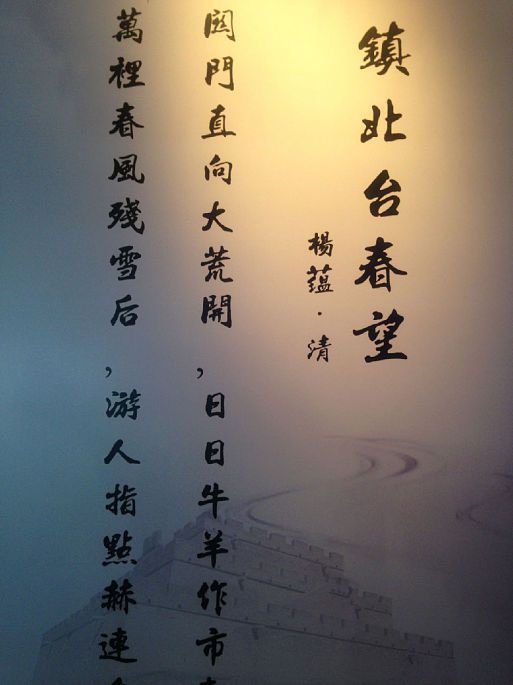 鎮北台春望
楊蕴·清
関門直向大荒開,日日牛羊作市
萬裡春風殘雪后,游人指點赫連